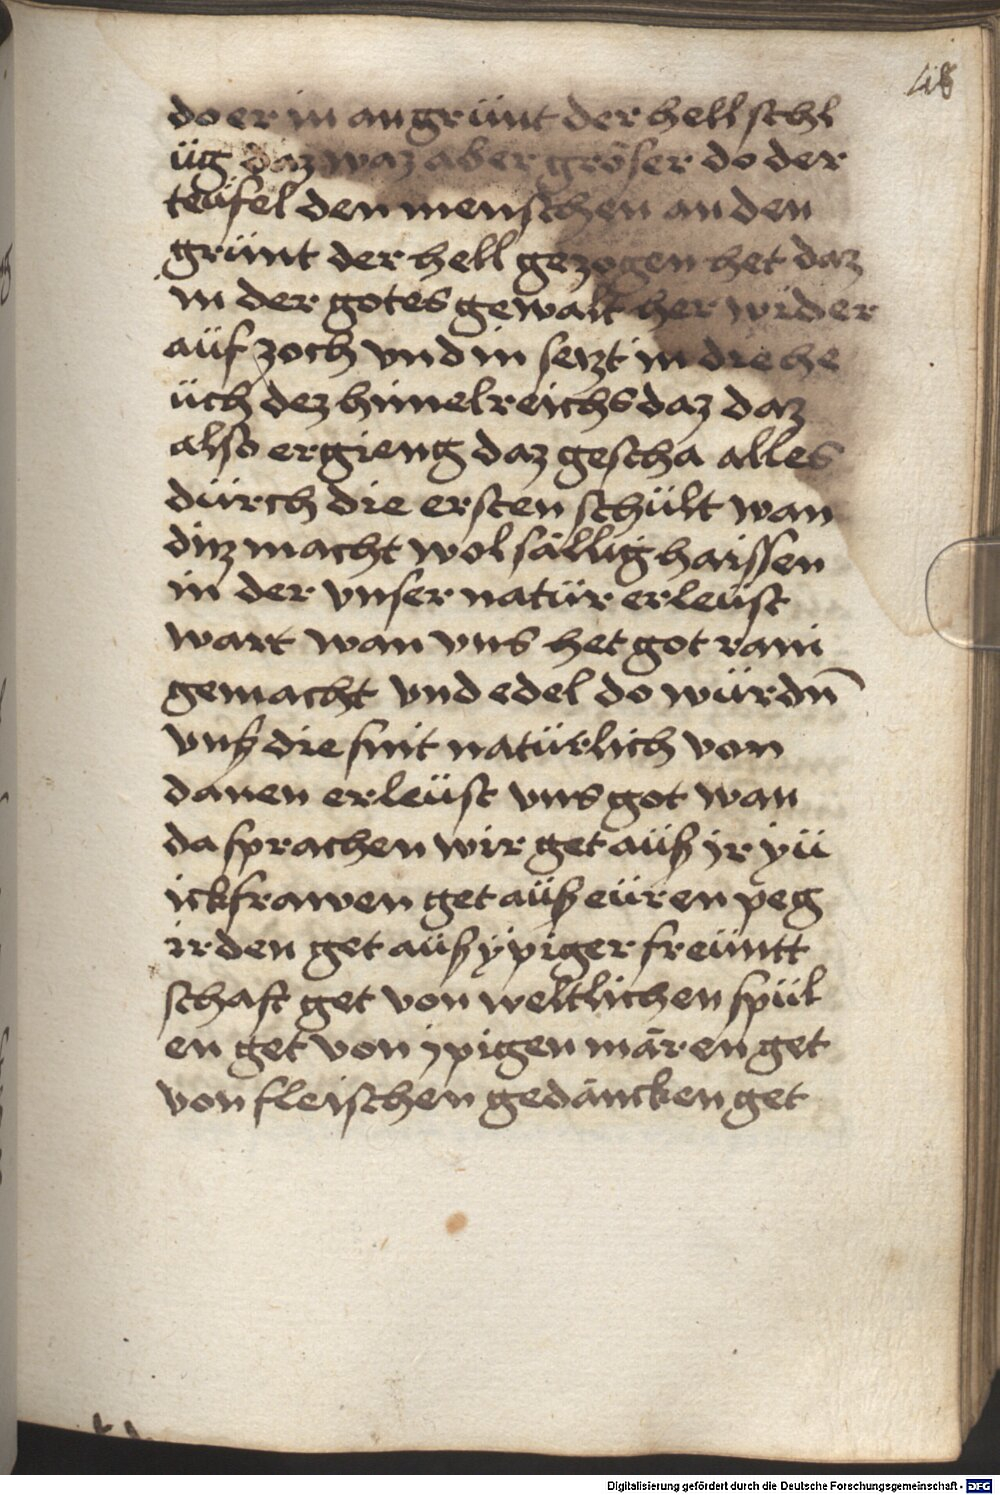 48
do er in an grünt der hell schl
üg daz waz aber gröser do der
teüfel den menschen an den
grünt der hell gezogen het daz
in der gotes gewalt her wider
aüf zoch vnd in sezt in die he
üch dez himelreichs daz daz
also ergieng daz gescha alles
dürch die ersten schült wan
diz macht wol sällig haissen
in der vnser natür erleüst
wart wan vns het got rain
gemacht vnd edel do würdn̄
vnß die sint natürlich von
danen erleüst vns got wan
da sprachen wir get aüß ir yü
ickfrawen get aüß eüren peg
irden get aüß ÿpiger freüntt
schaft get von weltlichen spül
en get von ypigen mären get
von fleischen gedäncken get
Digitalisierung gefördert durch die Deutsche Forschungsgemeinschaft - DFG